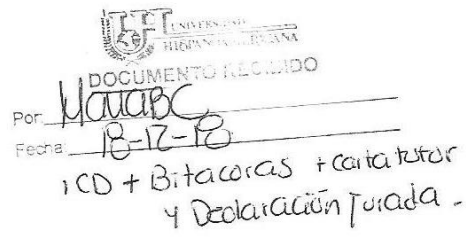 UNIVERSIDAD
HISPANOAMERICANA
DOCUMENTO RECIBIDO
Por:
Fecha: 18-12-18
1 CD + Bitacoras + carta tutor
y Declaración Jurada.